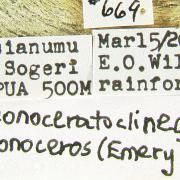 #669.
sianumu Mar15/20
Sogeri E.O.Wil
PUA 500M rainfor
onoceratoclinea
onoceros (Emery